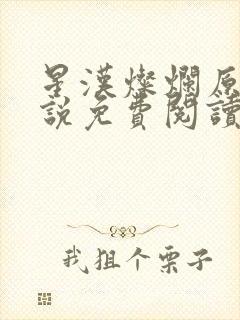 星漢燦爛原
說免費閱讀
我狙个栗子